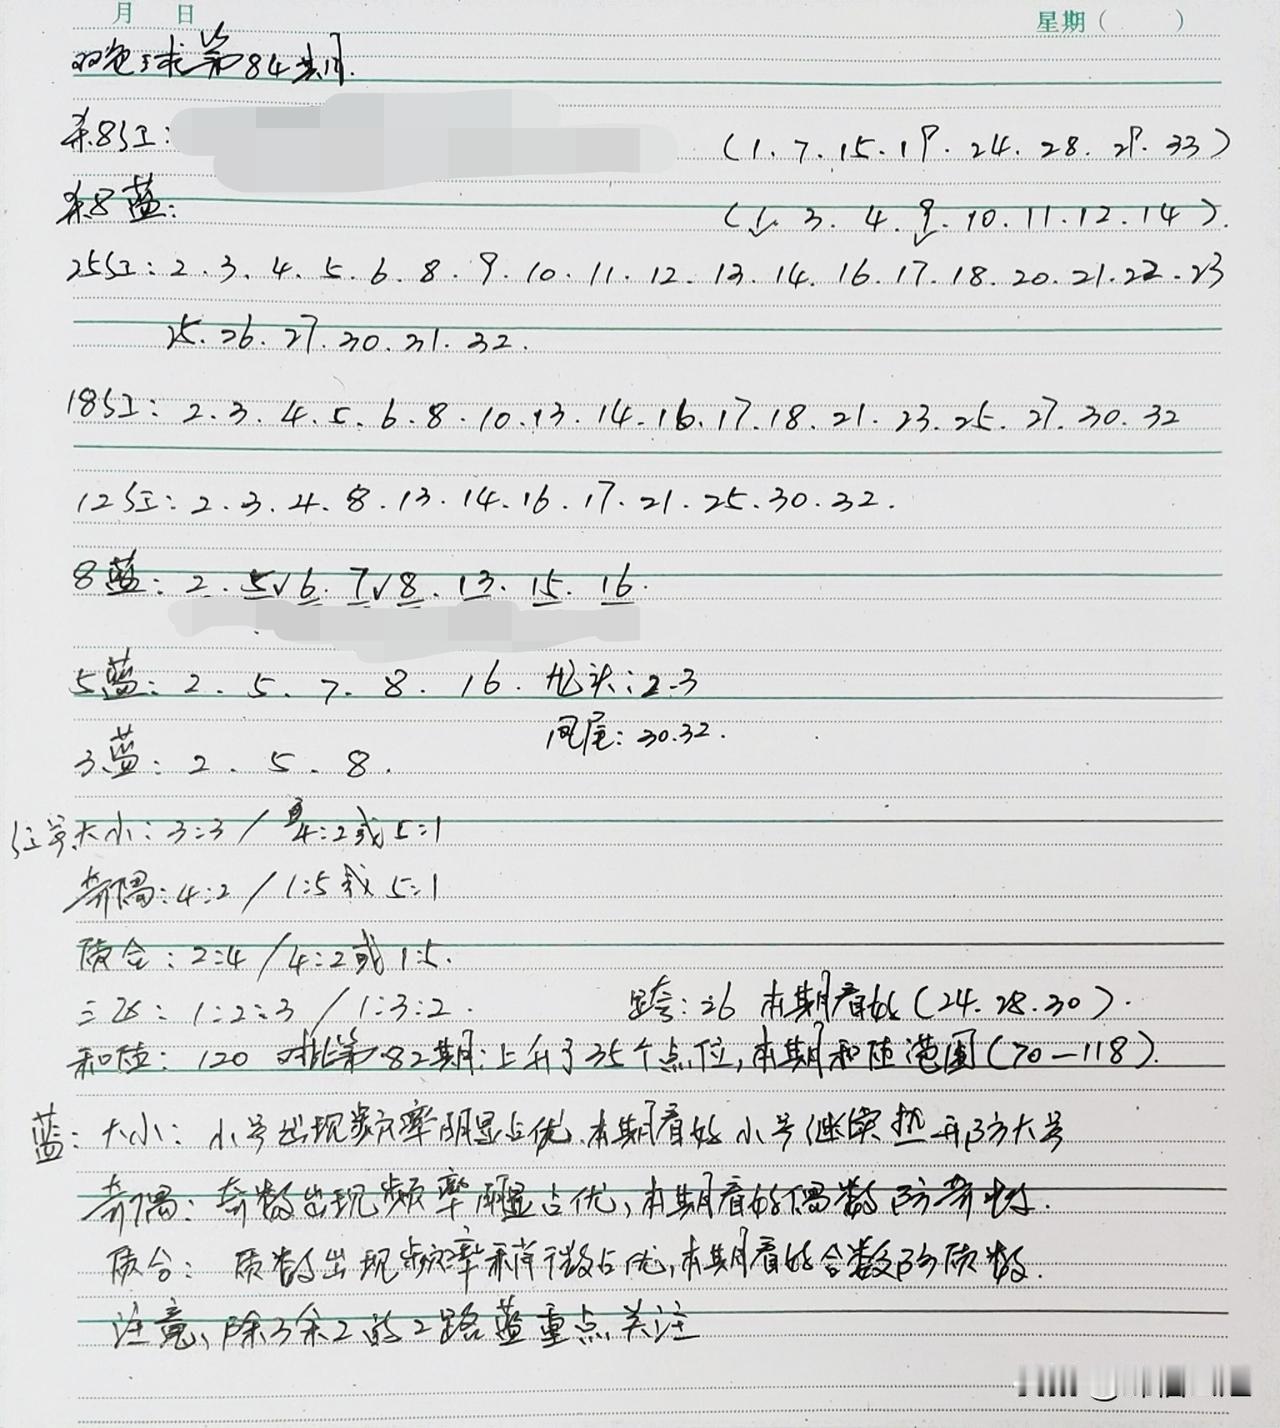 月 日 星期（ ）
双色球第84期.
杀8红: (1.7.15.19.24.28.29.33)
杀8蓝: (1.3.4.9.10.11.12.14).
25红: 2.3.4.5.6.8.9.10.11.12.13.14.16.17.18.20.21.22.23
25.26.27.30.31.32.
18红: 2.3.4.5.6.8.10.13.14.16.17.18.21.23.25.27.30.32
12红: 2.3.4.8.13.14.16.17.21.25.30.32.
8蓝: 2.5√6.7√8.13.15.16.
5蓝: 2.5.7.8.16. 龙头:2.3
凤尾:30.32.
3蓝: 2.5.8.
红号大小: 3:3/4:2或5:1
奇偶:4:2/1:5或5:1
质合:2:4/4:2或1:5.
三区:1:2:3/1:3:2. 跨:26 本期看好(24.28.30).
和值:120 对比第82期:上升了35个点位,本期和值范围(70—118).
蓝: 大小: 小号出现频率明显占优.本期看好小号继续热开防大号
奇偶: 奇数出现频率明显占优,本期看好偶数防奇数.
质合: 质数出现频率稍微占优,本期看好合数防质数.
注意、除3余2的2路蓝重点关注